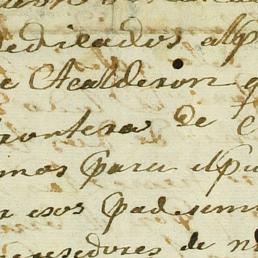 dedicados alp
e Acalderon q
rontera de C
mos para elpu
r esos pad
cresedores de n